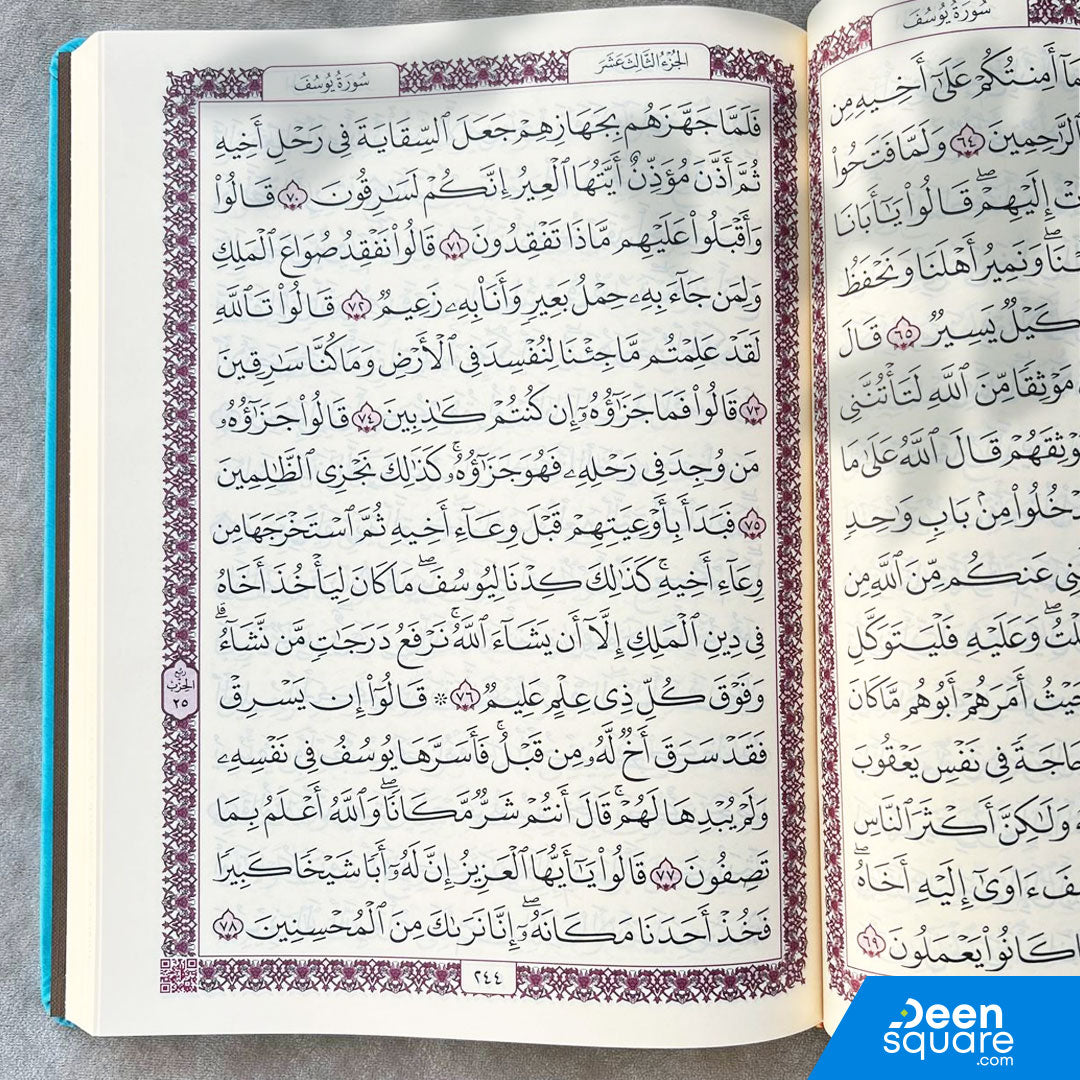 سُورَةُ يُوسُفَ
مَآ أَمِنتُكُمْ عَلَىٰٓ أَخِيهِ مِن
ٱلرَّٰحِمِينَ ٦٤ وَلَمَّا فَتَحُوا۟
إِلَيْهِمْ ۖ قَالُوا۟ يَـٰٓأَبَانَا
وَنَمِيرُ أَهْلَنَا وَنَحْفَظُ
كَيْلٌ يَسِيرٌ ٦٥ قَالَ
مَوْثِقًا مِّنَ ٱللَّهِ لَتَأْتُنَّنِى
قَالَ ٱللَّهُ عَلَىٰ مَا
مِنۢ بَابٍ وَٰحِدٍ
عَنكُم مِّنَ ٱللَّهِ مِن
وَعَلَيْهِ فَلْيَتَوَكَّلِ
حَيْثُ أَمَرَهُمْ أَبُوهُم مَّا كَانَ
حَاجَةً فِى نَفْسِ يَعْقُوبَ
وَلَـٰكِنَّ أَكْثَرَ ٱلنَّاسِ
ءَاوَىٰٓ إِلَيْهِ أَخَاهُ ۖ
كَانُوا۟ يَعْمَلُونَ ٦٩
الجُزْءُ الثَّالِثَ عَشَرَ
سُورَةُ يُوسُفَ
فَلَمَّا جَهَّزَهُم بِجَهَازِهِمْ جَعَلَ ٱلسِّقَايَةَ فِى رَحْلِ أَخِيهِ
ثُمَّ أَذَّنَ مُؤَذِّنٌ أَيَّتُهَا ٱلْعِيرُ إِنَّكُمْ لَسَـٰرِقُونَ ٧٠ قَالُوا۟
وَأَقْبَلُوا۟ عَلَيْهِم مَّاذَا تَفْقِدُونَ ٧١ قَالُوا۟ نَفْقِدُ صُوَاعَ ٱلْمَلِكِ
وَلِمَن جَآءَ بِهِۦ حِمْلُ بَعِيرٍ وَأَنَا۠ بِهِۦ زَعِيمٌ ٧٢ قَالُوا۟ تَٱللَّهِ
لَقَدْ عَلِمْتُم مَّا جِئْنَا لِنُفْسِدَ فِى ٱلْأَرْضِ وَمَا كُنَّا سَـٰرِقِينَ
٧٣ قَالُوا۟ فَمَا جَزَٰٓؤُهُۥٓ إِن كُنتُمْ كَـٰذِبِينَ ٧٤ قَالُوا۟ جَزَٰٓؤُهُۥ
مَن وُجِدَ فِى رَحْلِهِۦ فَهُوَ جَزَٰٓؤُهُۥ ۚ كَذَٰلِكَ نَجْزِى ٱلظَّـٰلِمِينَ
٧٥ فَبَدَأَ بِأَوْعِيَتِهِمْ قَبْلَ وِعَآءِ أَخِيهِ ثُمَّ ٱسْتَخْرَجَهَا مِن
وِعَآءِ أَخِيهِ ۚ كَذَٰلِكَ كِدْنَا لِيُوسُفَ ۖ مَا كَانَ لِيَأْخُذَ أَخَاهُ
فِى دِينِ ٱلْمَلِكِ إِلَّآ أَن يَشَآءَ ٱللَّهُ ۚ نَرْفَعُ دَرَجَـٰتٍ مَّن نَّشَآءُ ۗ
وَفَوْقَ كُلِّ ذِى عِلْمٍ عَلِيمٌ ٧٦ ۞ قَالُوٓا۟ إِن يَسْرِقْ
فَقَدْ سَرَقَ أَخٌ لَّهُۥ مِن قَبْلُ ۚ فَأَسَرَّهَا يُوسُفُ فِى نَفْسِهِۦ
وَلَمْ يُبْدِهَا لَهُمْ ۚ قَالَ أَنتُمْ شَرٌّ مَّكَانًا ۖ وَٱللَّهُ أَعْلَمُ بِمَا
تَصِفُونَ ٧٧ قَالُوا۟ يَـٰٓأَيُّهَا ٱلْعَزِيزُ إِنَّ لَهُۥٓ أَبًا شَيْخًا كَبِيرًا
فَخُذْ أَحَدَنَا مَكَانَهُۥٓ ۖ إِنَّا نَرَىٰكَ مِنَ ٱلْمُحْسِنِينَ ٧٨
ربع
الحزب
٢٥
٢٤٤
Deen
square
.com